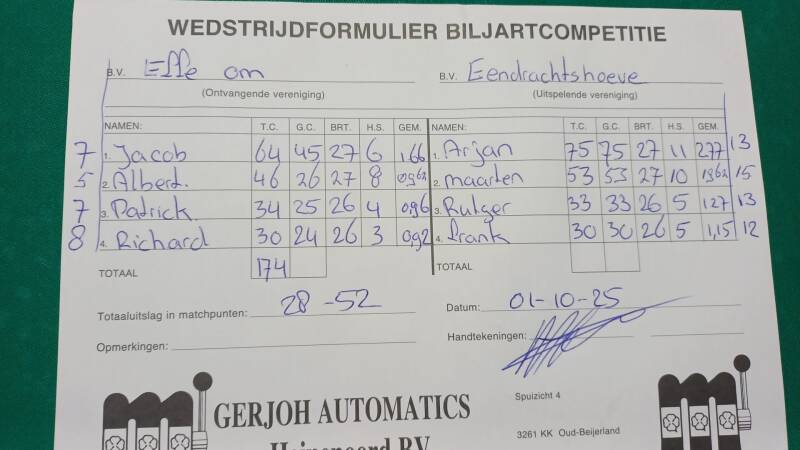 WEDSTRIJDFORMULIER BILJARTCOMPETITIE
B.V. Effe om B.V. Eendrachtshoeve
(Ontvangende vereniging) (Uitspelende vereniging)
NAMEN: T.C. G.C. BRT. H.S. GEM. NAMEN: T.C. G.C. BRT. H.S. GEM.
7 1. Jacob 64 45 27 6 1,66 1. Arjan 75 75 27 11 2,77 13
5 2. Albert. 46 26 27 8 0,962 2. maarten 53 53 27 10 1,962 15
7 3. Patrick. 34 25 26 4 0,96 3. Rutger 33 33 26 5 1,27 13
8 4. Richard 30 24 26 3 0,92 4. frank 30 30 26 5 1,15 12
TOTAAL 174 TOTAAL
Totaaluitslag in matchpunten: 28 - 52 Datum: 01-10-25
Opmerkingen: Handtekeningen:
GERJOH AUTOMATICS Spuizicht 4
Heinenoord B.V. 3261 KK Oud-Beijerland